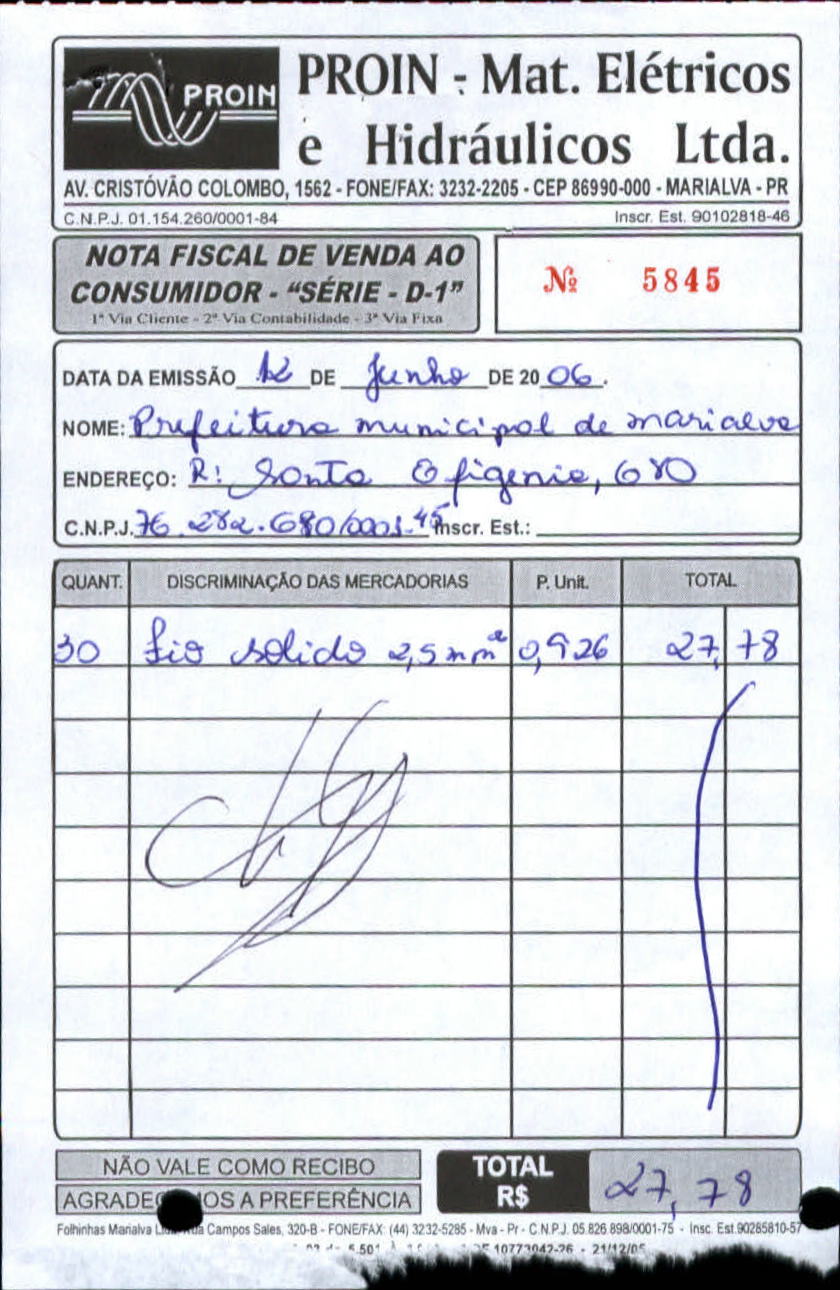 PROIN
PROIN - Mat. Elétricos
e Hidráulicos Ltda.
AV. CRISTÓVÃO COLOMBO, 1562 - FONE/FAX: 3232-2205 - CEP 86990-000 - MARIALVA - PR
C.N.P.J. 01.154.260/0001-84 Inscr. Est. 90102818-46
NOTA FISCAL DE VENDA AO
CONSUMIDOR - "SÉRIE - D-1"
1ª Via Cliente - 2ª Via Contabilidade - 3ª Via Fixa
Nº 5845
DATA DA EMISSÃO 12 DE Junho DE 2006.
NOME: Prefeitura municipal de marialva
ENDEREÇO: R: Santa Efigenia, 680
C.N.P.J. 76.282.680/0001-45 Inscr. Est.:
QUANT. DISCRIMINAÇÃO DAS MERCADORIAS P. Unit. TOTAL
30 fio solido 2,5 mm² 0,926 27,78
NÃO VALE COMO RECIBO
AGRADE OS A PREFERÊNCIA
TOTAL
R$ 27,78
Folhinhas Marialva Campos Sales, 320-B - FONE/FAX: (44) 3232-5285 - Mva - Pr - C.N.P.J. 05.826.898/0001-75 - Insc. Est. 90285810-57
5.501 10773042-26 - 21/12/05